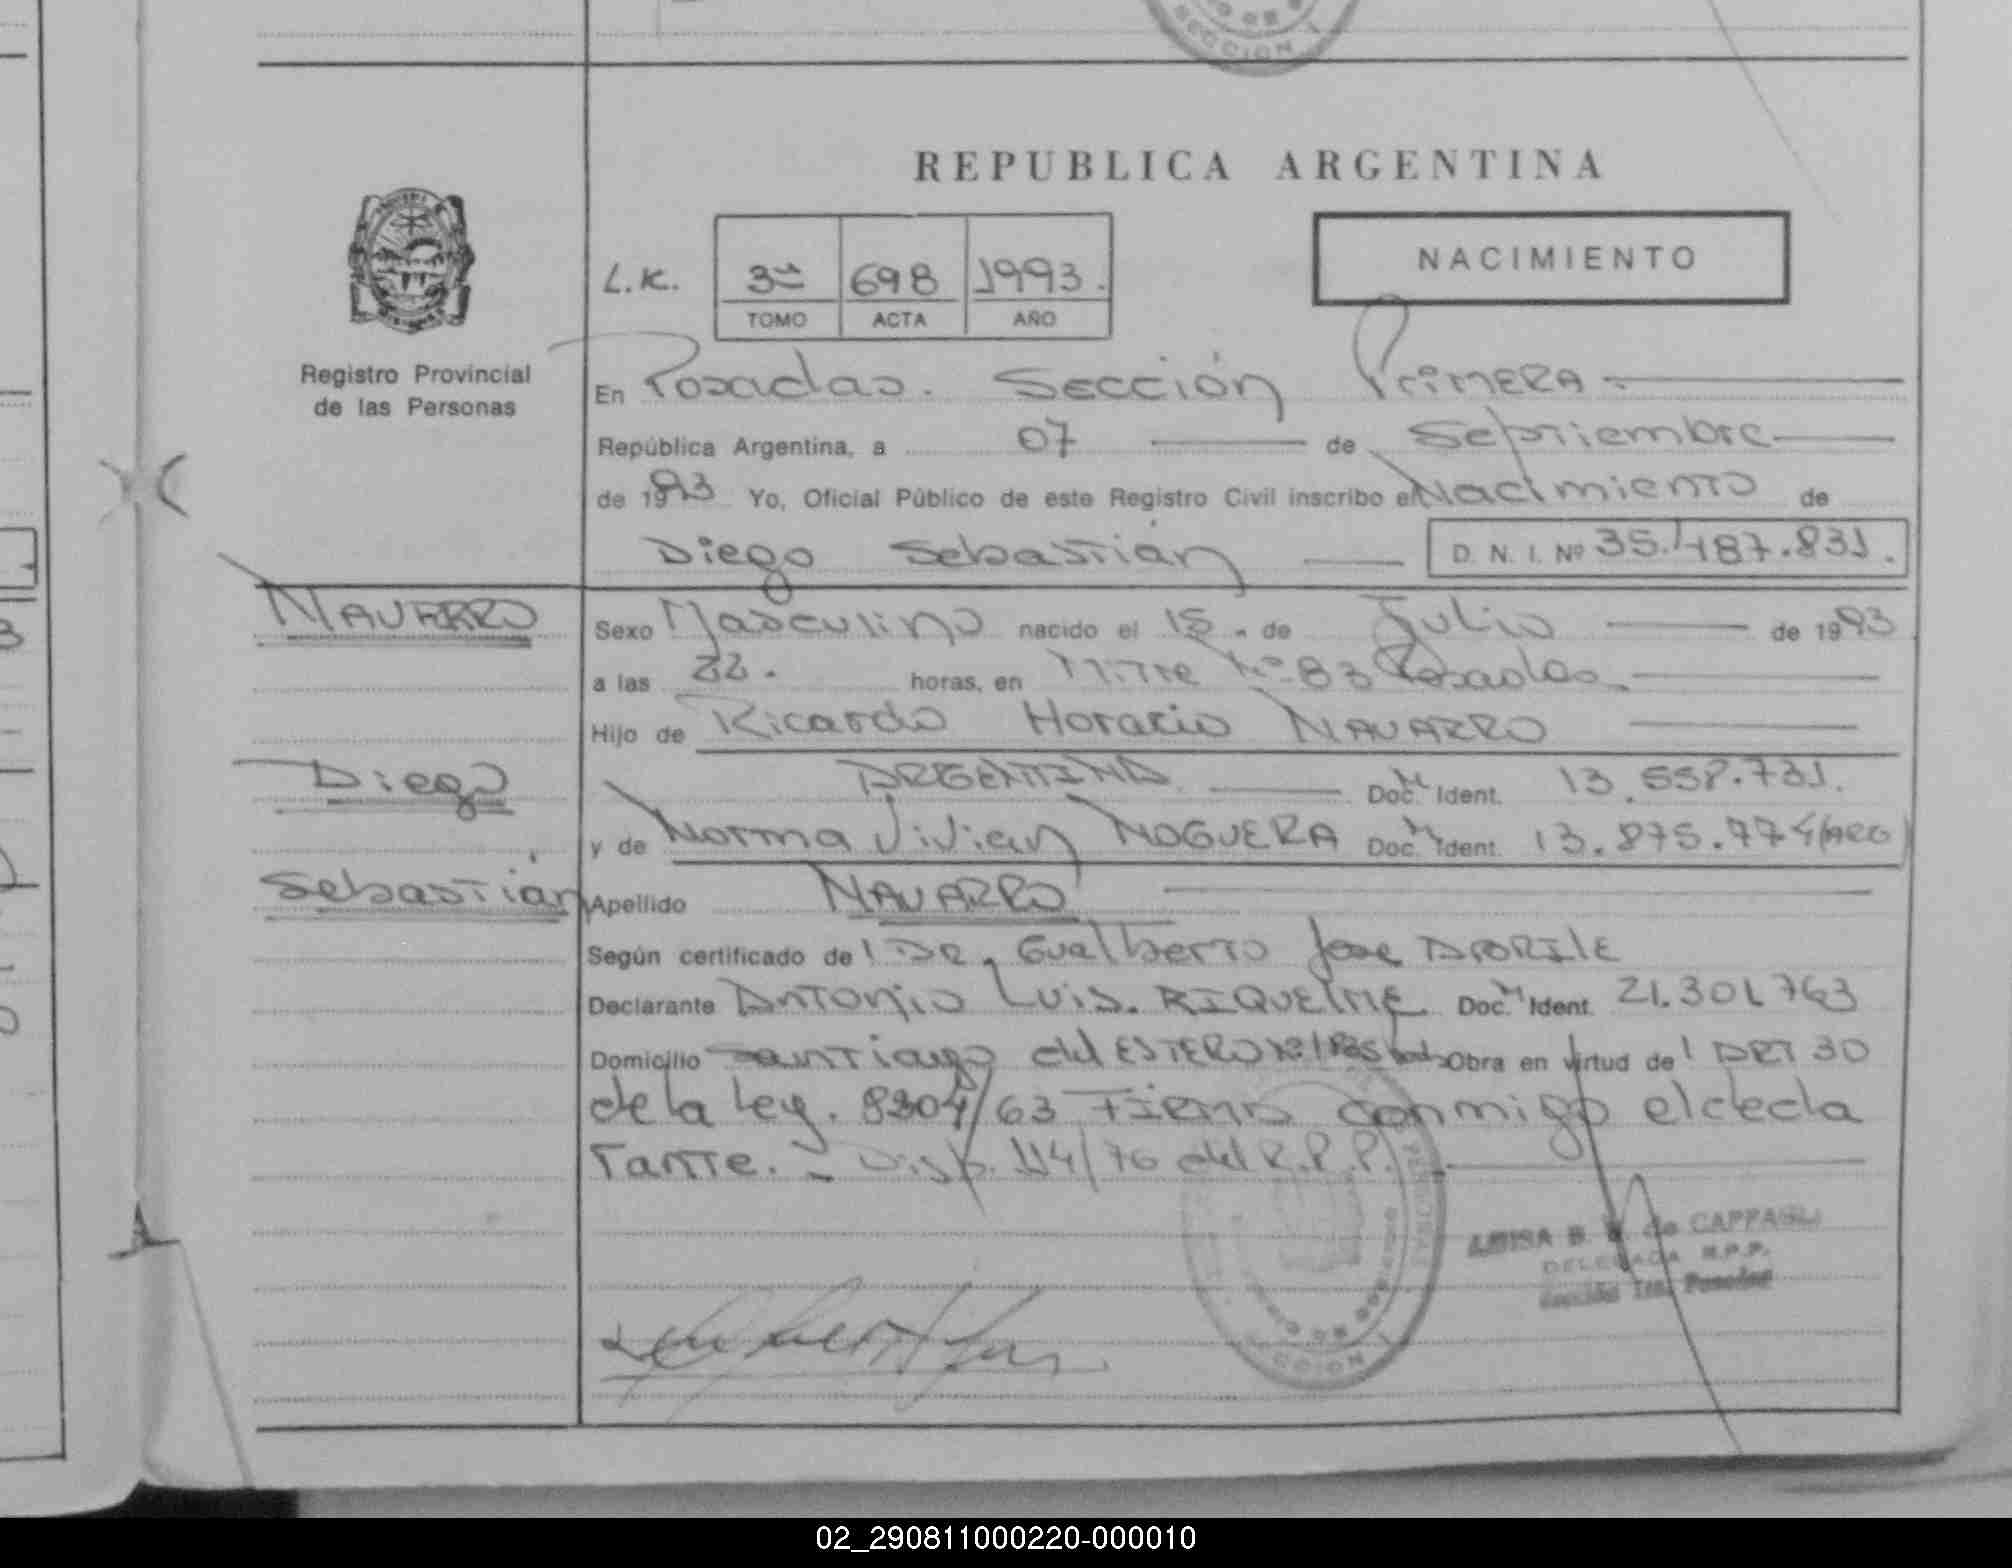 SECCION I
REPUBLICA ARGENTINA
NACIMIENTO
L.K. 3ra 698 1993.
TOMO ACTA AÑO
Registro Provincial
de las Personas
En Posadas. Sección Primera
República Argentina, a 07 de Septiembre
de 1993 Yo, Oficial Público de este Registro Civil inscribo el Nacimiento de
Diego Sebastián D. N. I. Nº 35.487.831.
NAVARRO
Diego
Sebastián
Sexo Masculino nacido el 15. de Julio de 1993
a las 22. horas, en Mitre Nº 83 Posadas.
Hijo de Ricardo Horacio NAVARRO
ARGENTINA Doc. Ident. 13.558.731.
y de Norma Vivian NOGUERA Doc. Ident. 13.875.774/ARG
Apellido NAVARRO
Según certificado del DR. Gualberto Jose
Declarante Antonio Luis. RIQUELME Doc. Ident. 21.301.763
Domicilio Santiago del ESTERO Nº Obra en virtud del ART 30
de la Ley. 8204/63 FIRMA conmigo el decla
rante. - Disp. 114/76 del R.P.P.
LUISA B. de CAPPAGLI
DELEGADA R.P.P.
Sección 1ra. Posadas
SECCION I
02_290811000220-000010